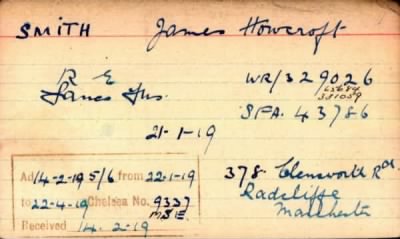 SMITH James Howcroft
R E WR/329026
Lancs Fus. 65684
331059
SFA. 43786
21-1-19
Ad 14-2-19 5/6 from 22-1-19
to 22-4-19 Chelsea No. 9337
Received 14.2.19
378. Rd.
Radcliffe
Manchester